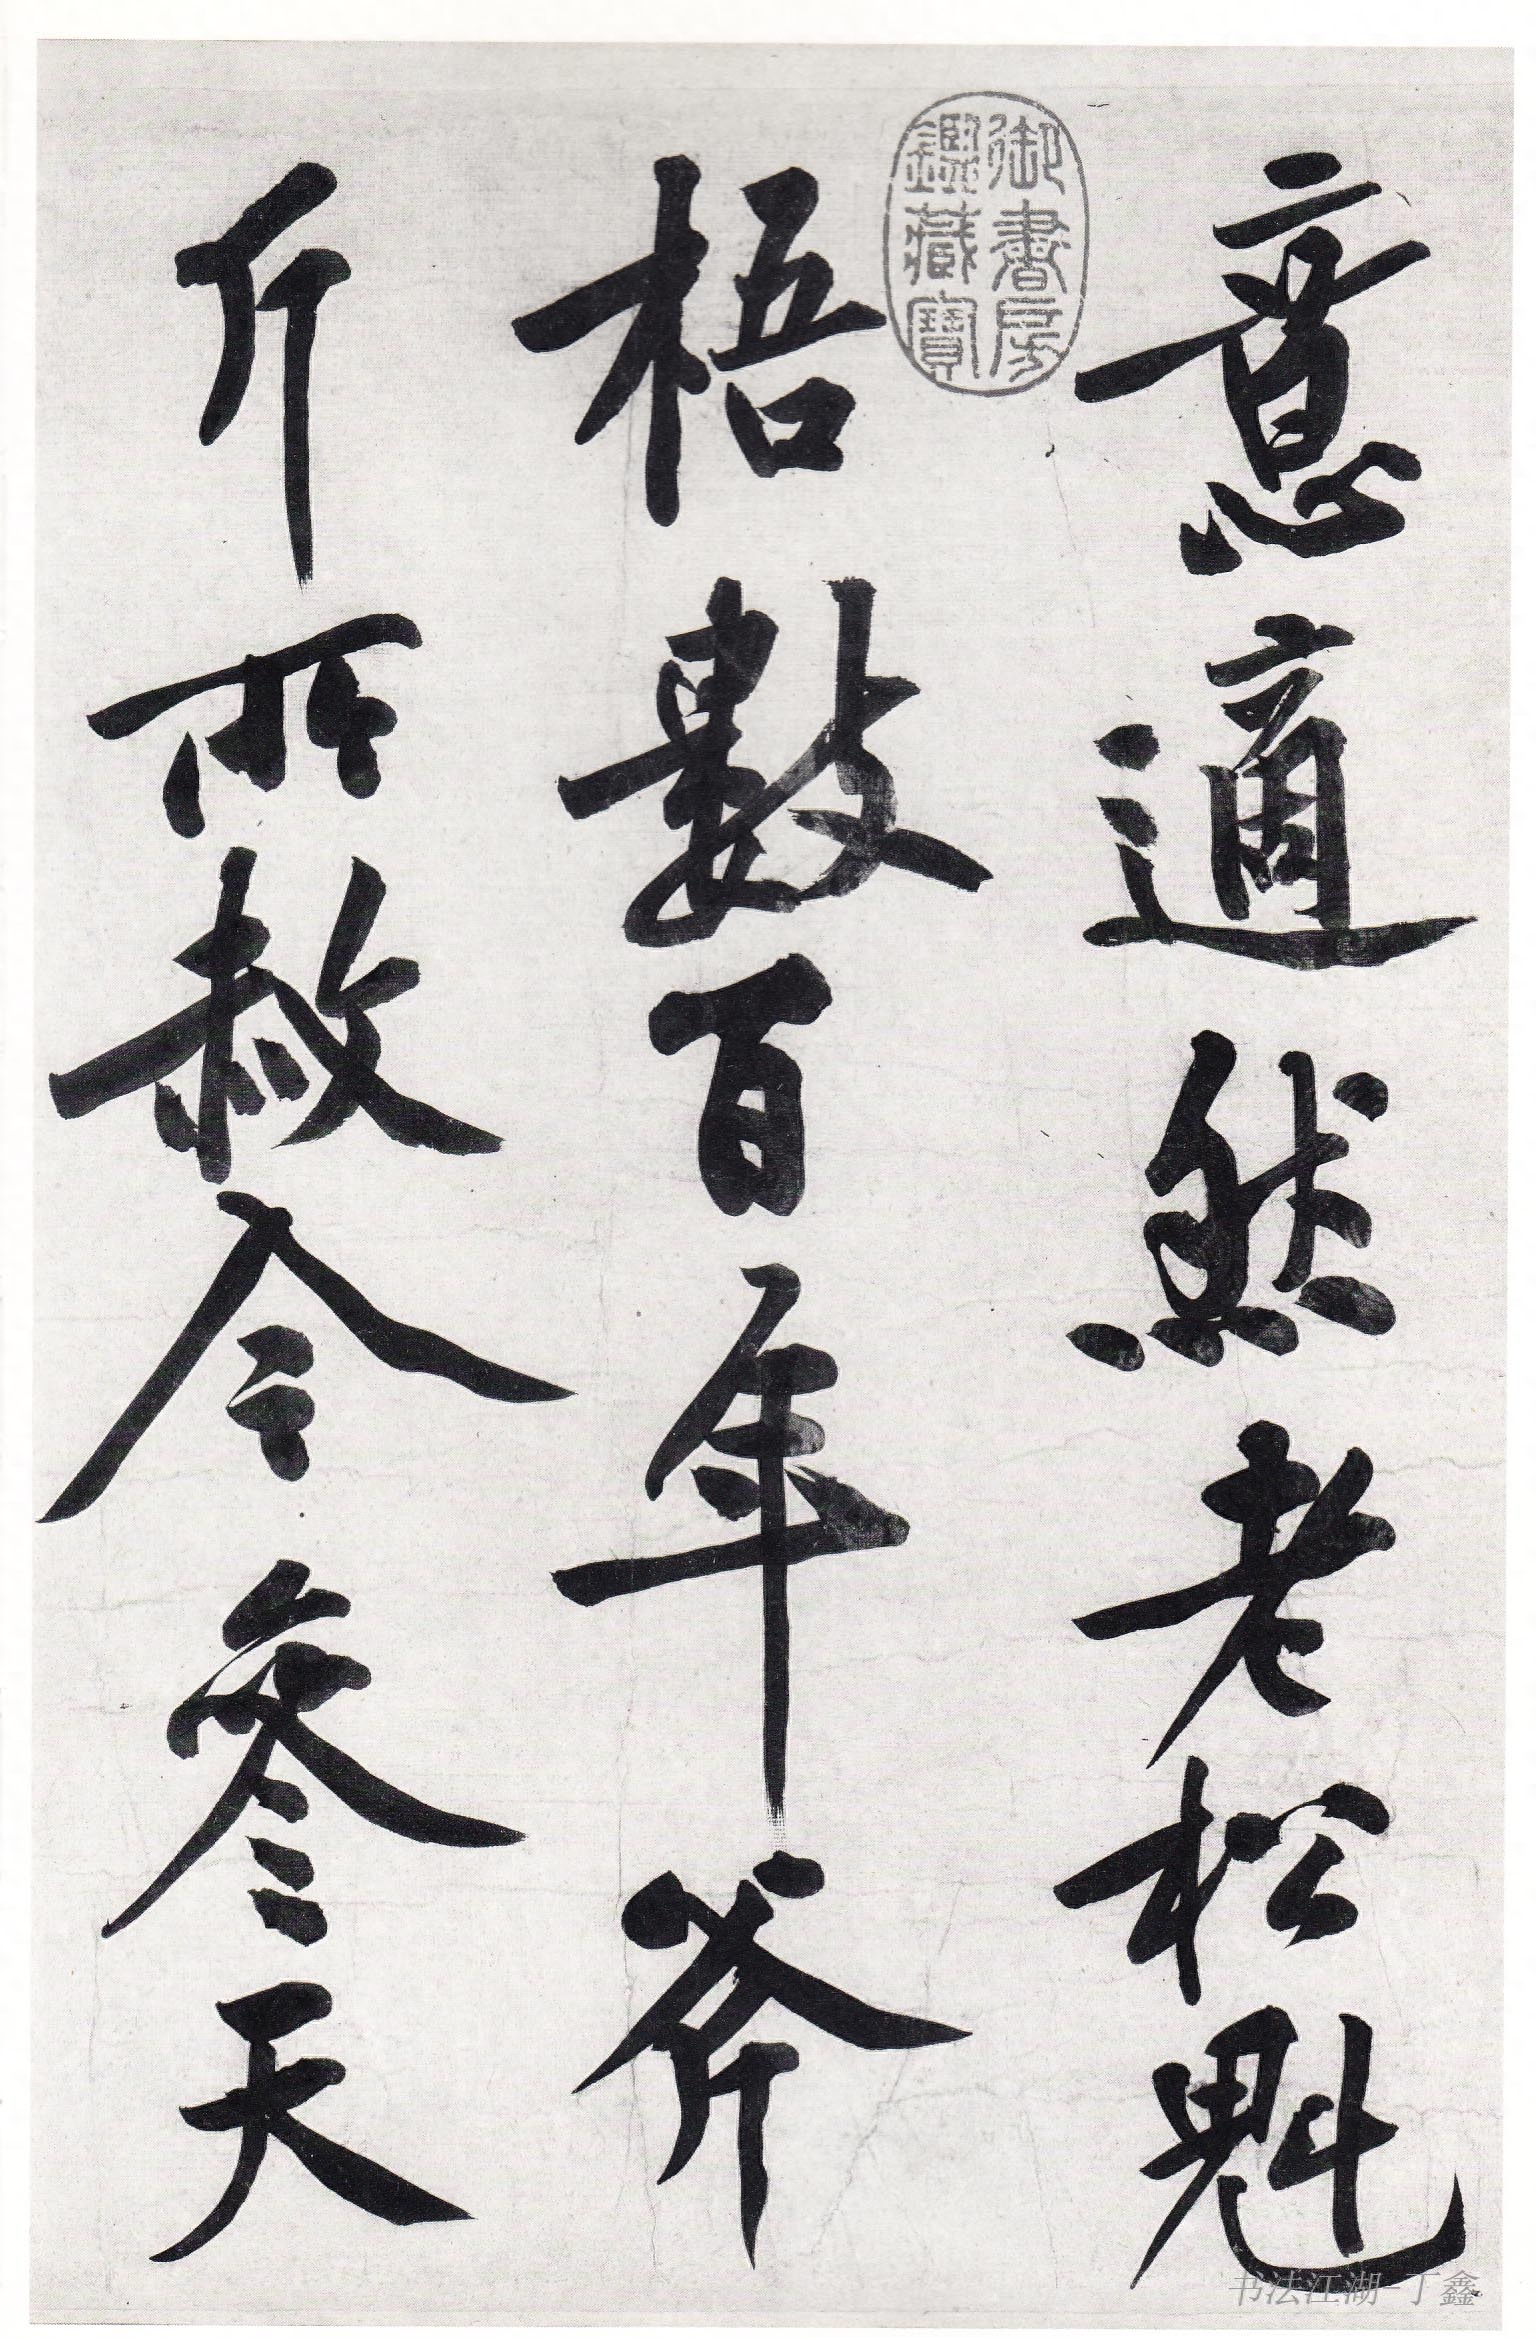 意適然老松魁
梧數百年斧
斤所赦今參天
御書房
鑑藏寶
书法江湖-丁鑫